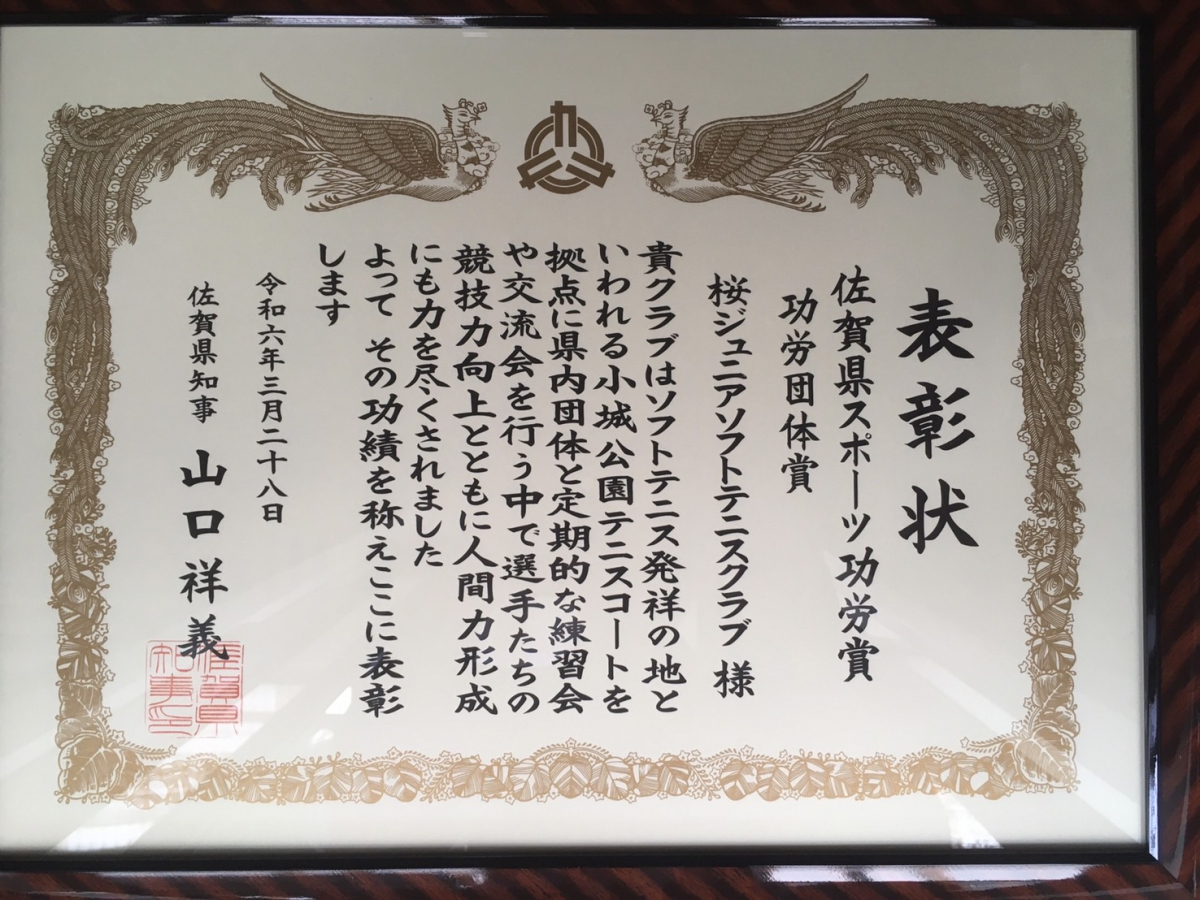 表彰状
佐賀県スポーツ功労賞
功労団体賞
桜ジュニアソフトテニスクラブ 様
貴クラブはソフトテニス発祥の地と
いわれる小城公園テニスコートを
拠点に県内団体と定期的な練習会
や交流会を行う中で選手たちの
競技力向上とともに人間力形成
にも力を尽くされました
よって その功績を称えここに表彰
します
令和六年三月二十八日
佐賀県知事 山口祥義
佐賀県
知事之印